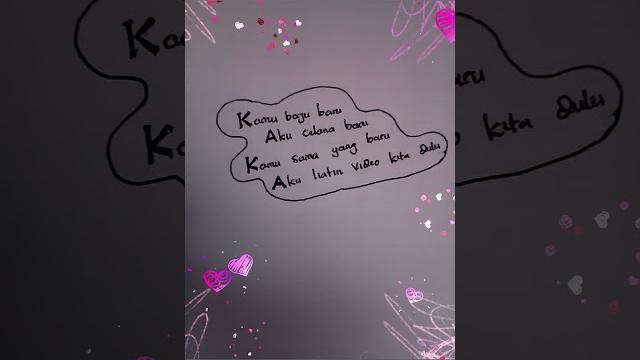 Kamu baju baru
Aku celana baru
Kamu sama yang baru
Aku liatin video kita dulu